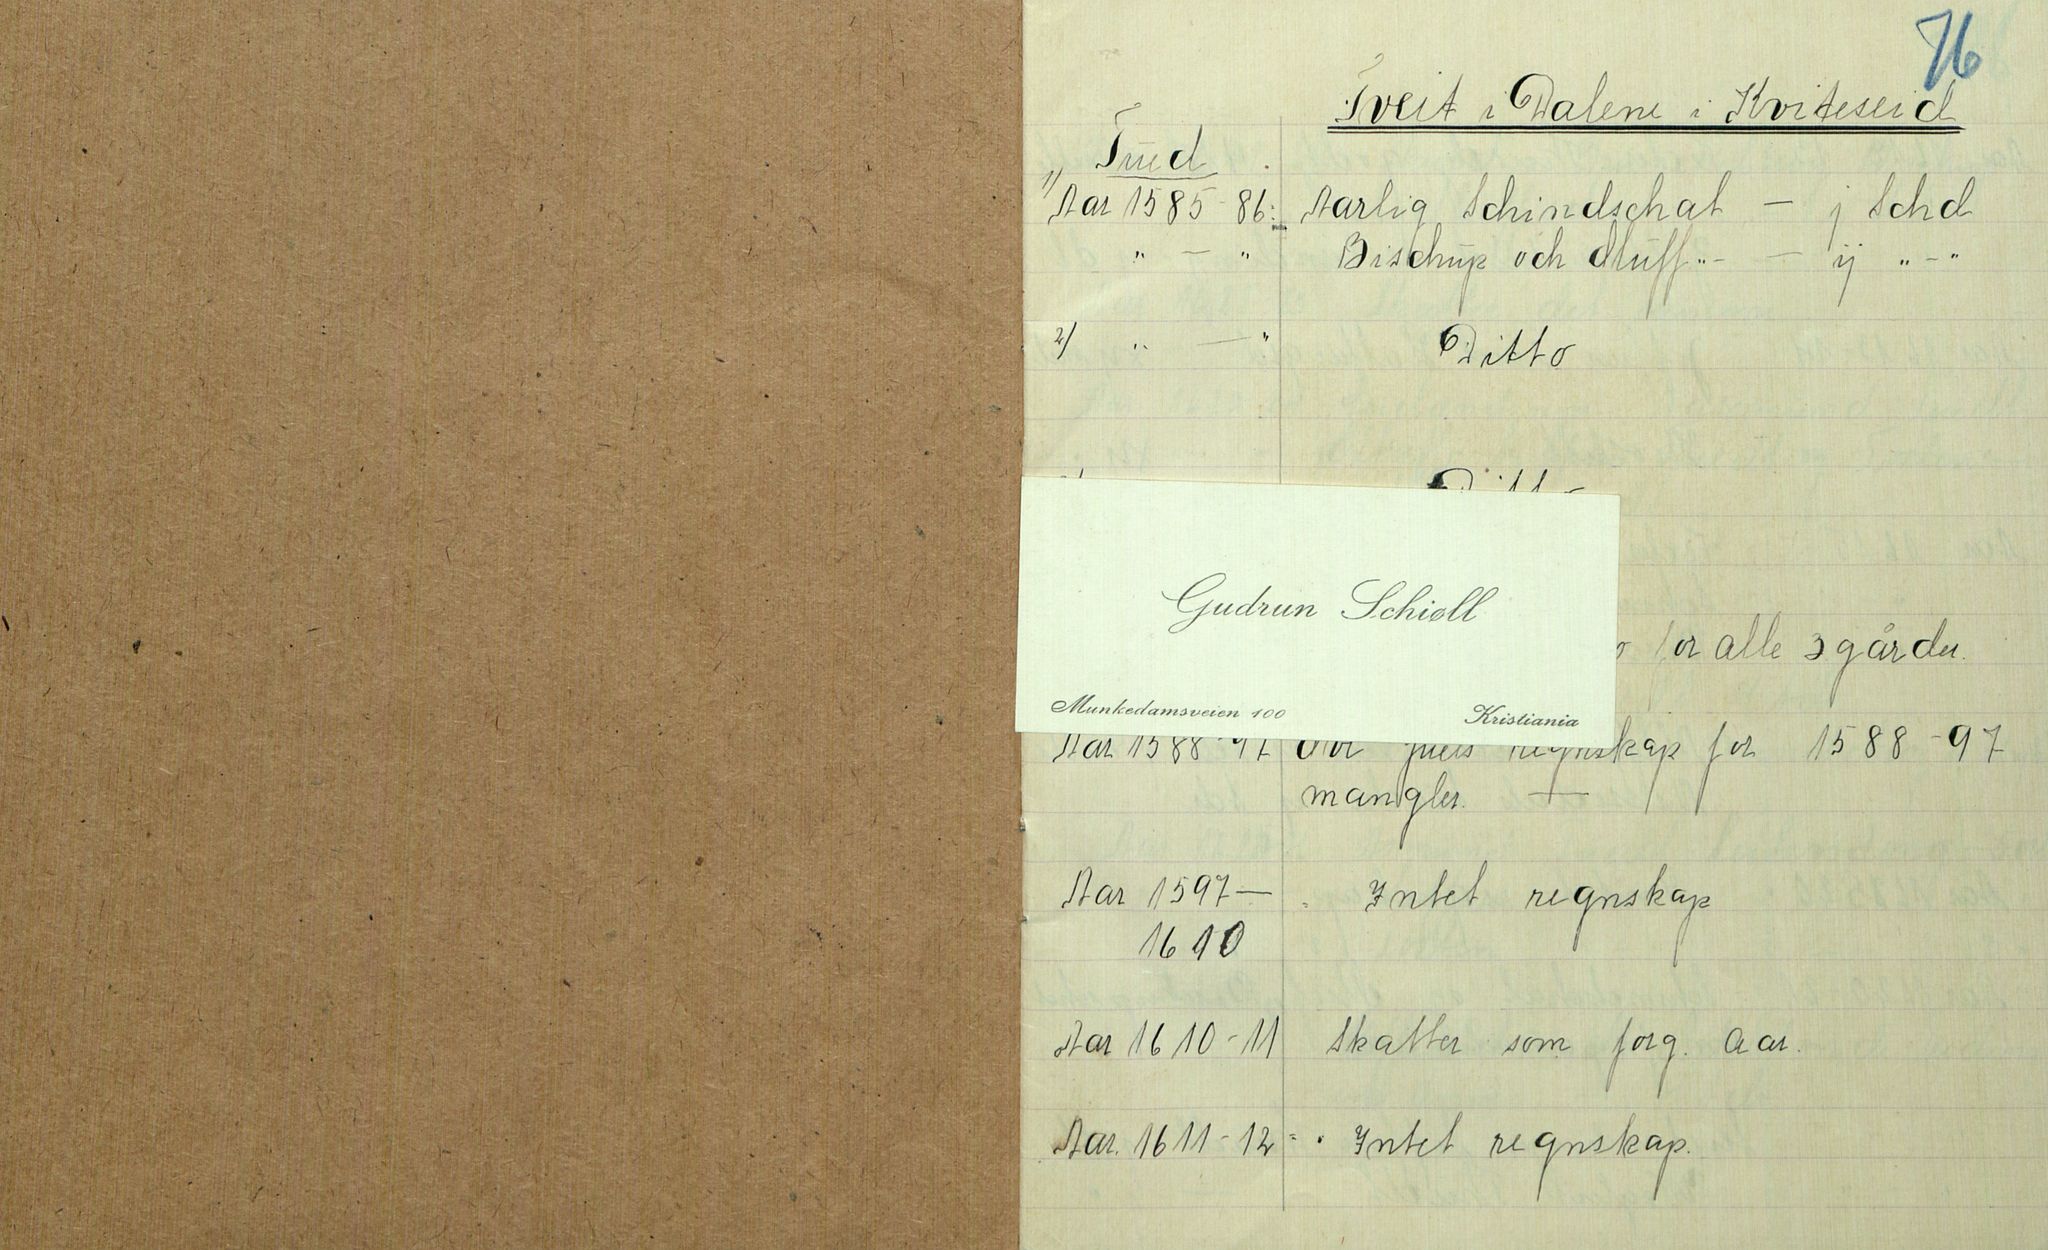 76
Tveit i Dalene i Kviteseid
Tued
1) Aar 1585-86: Aarlig Schindschat — j Schd
" — " Bischup och Hluff "- — ij " - "
2) " — " Ditto
Ditto
Gudrun Schiøll
Munkedamsveien 100 Kristiania
for alle 3 gårder.
Aar 1588-97 regnskap for 1588-97
mangler. —
Aar 1597— Intet regnskap
1610
Aar 1610-11 Skatter som forg. Aar.
Aar. 1611-12 = Intet regnskap.